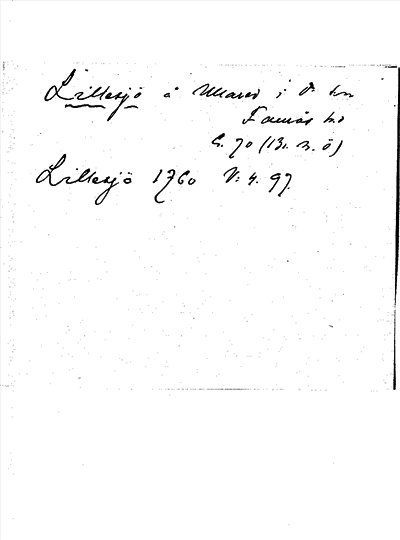 Lillesjö å Ulvared i Ö. sn
Faurås hd
C. 70 (131. n. ö)
Lillesjö 1760 V: 4. 97.